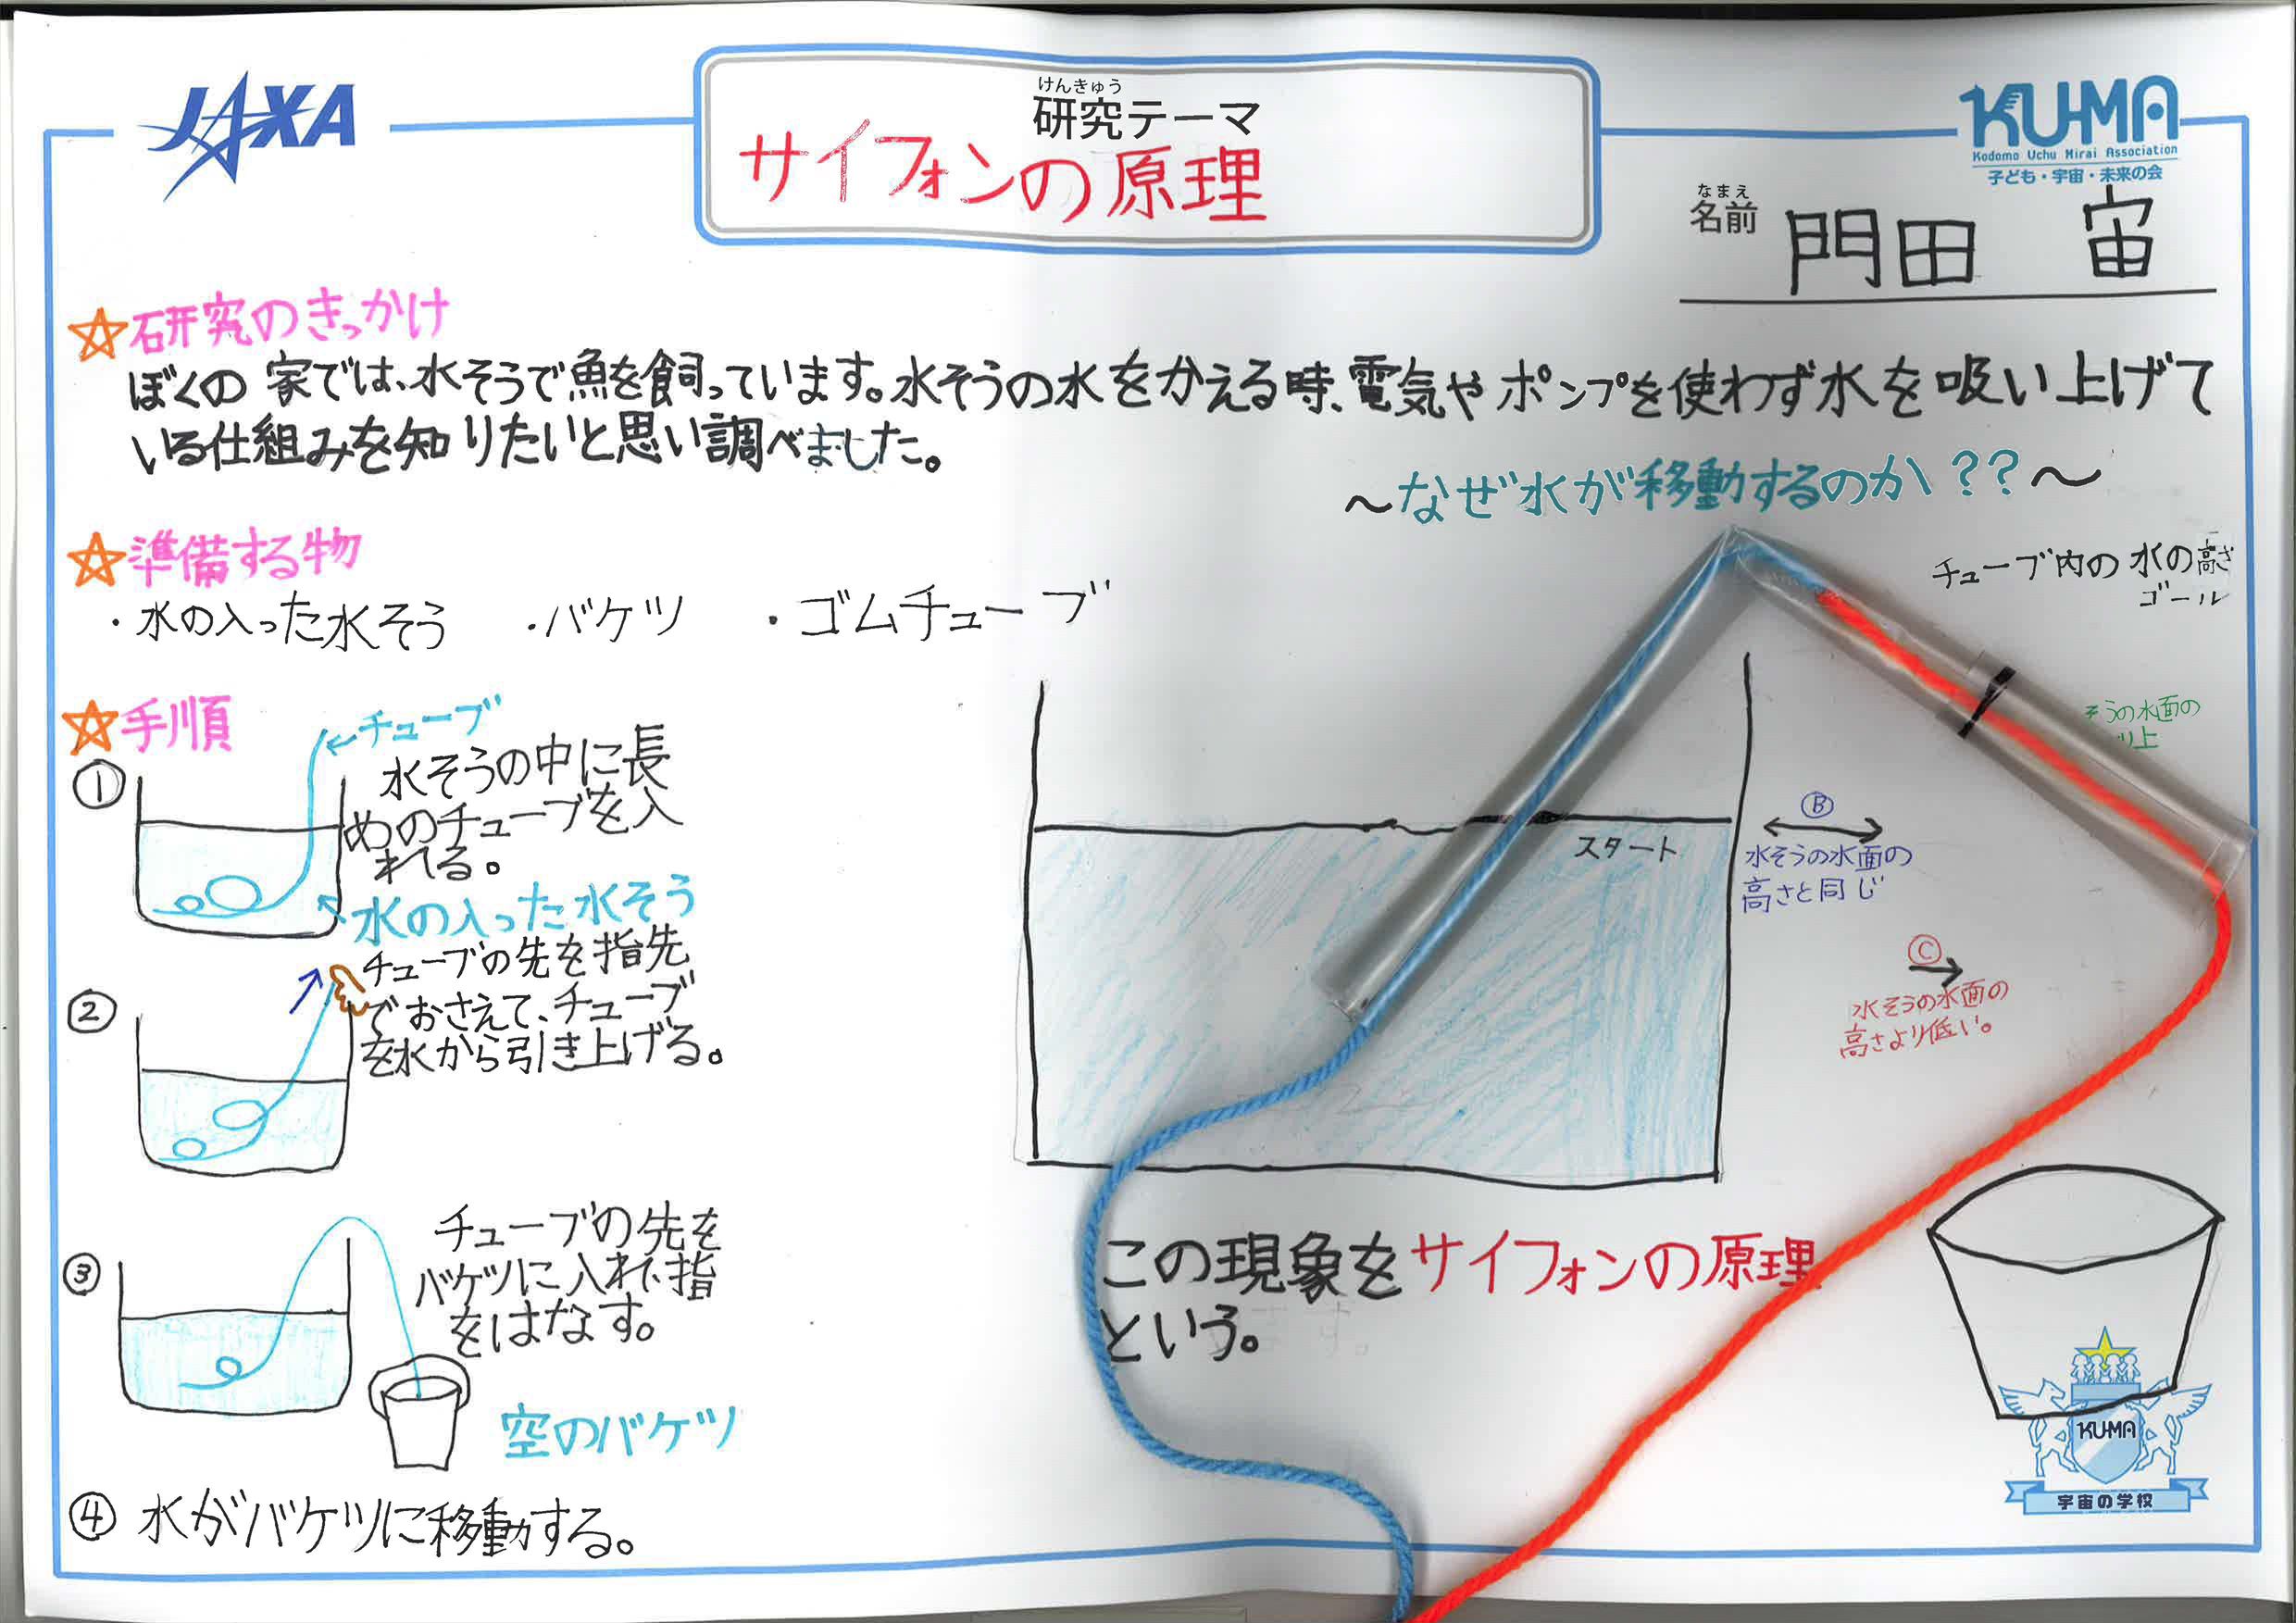 JAXA
けんきゅう
研究テーマ
サイフォンの原理
KU-MA
Kodomo Uchu Mirai Association
子ども・宇宙・未来の会
なまえ
名前 門田 宙
☆研究のきっかけ
ぼくの家では、水そうで魚を飼っています。水そうの水をかえる時、電気やポンプを使わず水を吸い上げて
いる仕組みを知りたいと思い調べました。
☆準備する物
・水の入った水そう ・バケツ ・ゴムチューブ
☆手順
←チューブ
① 水そうの中に長
めのチューブを入
れる。
水の入った水そう
② チューブの先を指先
でおさえて、チューブ
を水から引き上げる。
③ チューブの先を
バケツに入れ、指
をはなす。
空のバケツ
④ 水がバケツに移動する。
～なぜ水が移動するのか??～
チューブ内の水の高さ
ゴール
うの水面の
り上
スタート
Ⓑ
水そうの水面の
高さと同じ
Ⓒ
水そうの水面の
高さより低い。
この現象をサイフォンの原理
という。
KU-MA
宇宙の学校